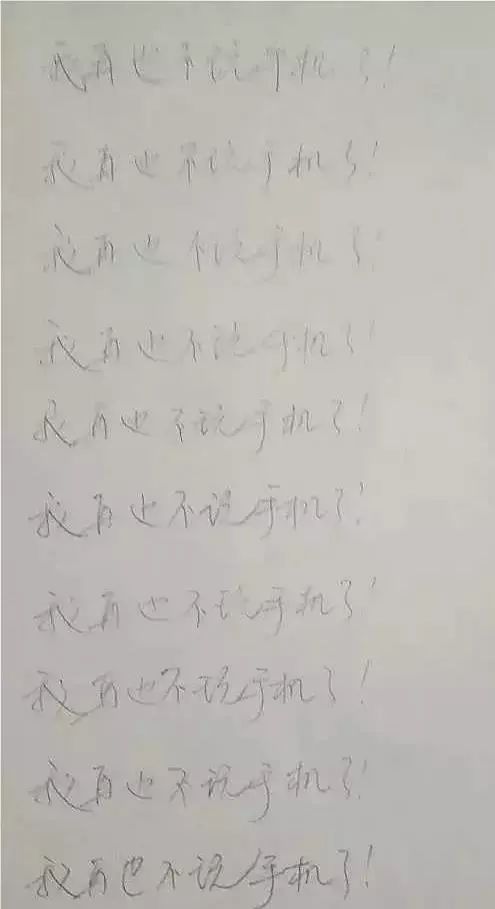 我再也不玩手机了！
我再也不玩手机了！
我再也不玩手机了！
我再也不说手机了！
我再也不玩手机了！
我再也不说手机了！
我再也不玩手机了！
我再也不玩手机了！
我再也不说手机了！
我再也不说手机了！